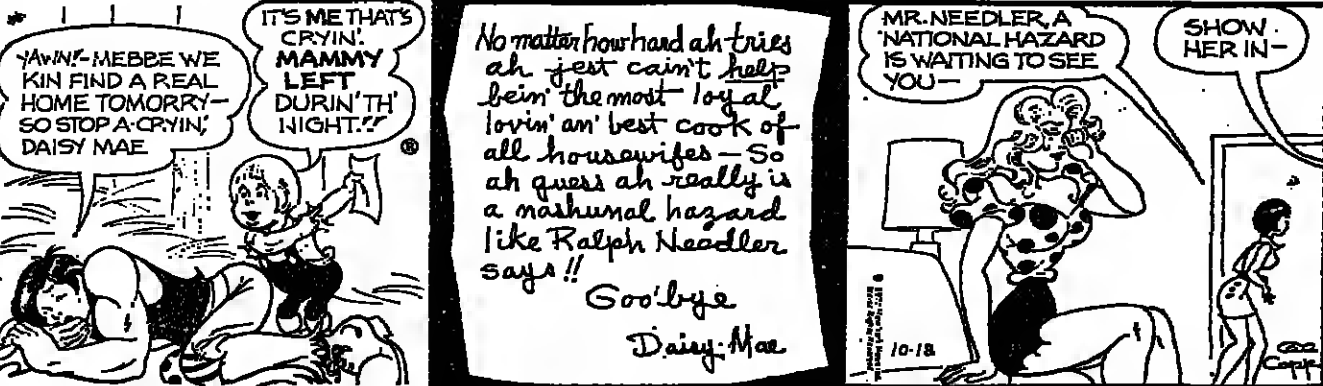 YAWN!-MEBBE WE
KIN FIND A REAL
HOME TOMORRY-
SO STOP A-CRYIN,'
DAISY MAE
IT'S ME THAT'S
CRYIN'.
MAMMY
LEFT
DURIN' TH'
NIGHT!!
®
No matter how hard ah tries
ah jest cain't help
bein' the most loyal
lovin' an' best cook of
all housewifes - So
ah guess ah really is
a nashunal hazard
like Ralph Needler
says!!
Goo'bye
Daisy Mae
MR. NEEDLER, A
NATIONAL HAZARD
IS WAITING TO SEE
YOU-
SHOW
HER IN-
10-18
Capp